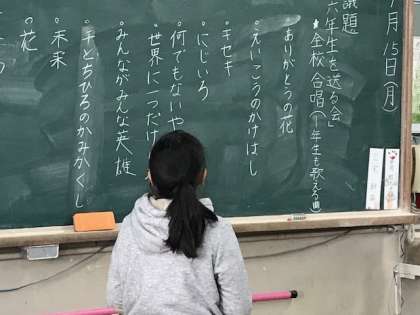 月15日(月)
議題
六年生を送る会」
★全校合唱(1年生も歌える曲)
◦ありがとうの花
◦えいこうのかけはし
◦キセキ
◦にじいろ
◦何でもないや
◦世界に一つだけ
◦みんながみんな英雄
◦千とちひろのかみかくし
◦未来
◦花